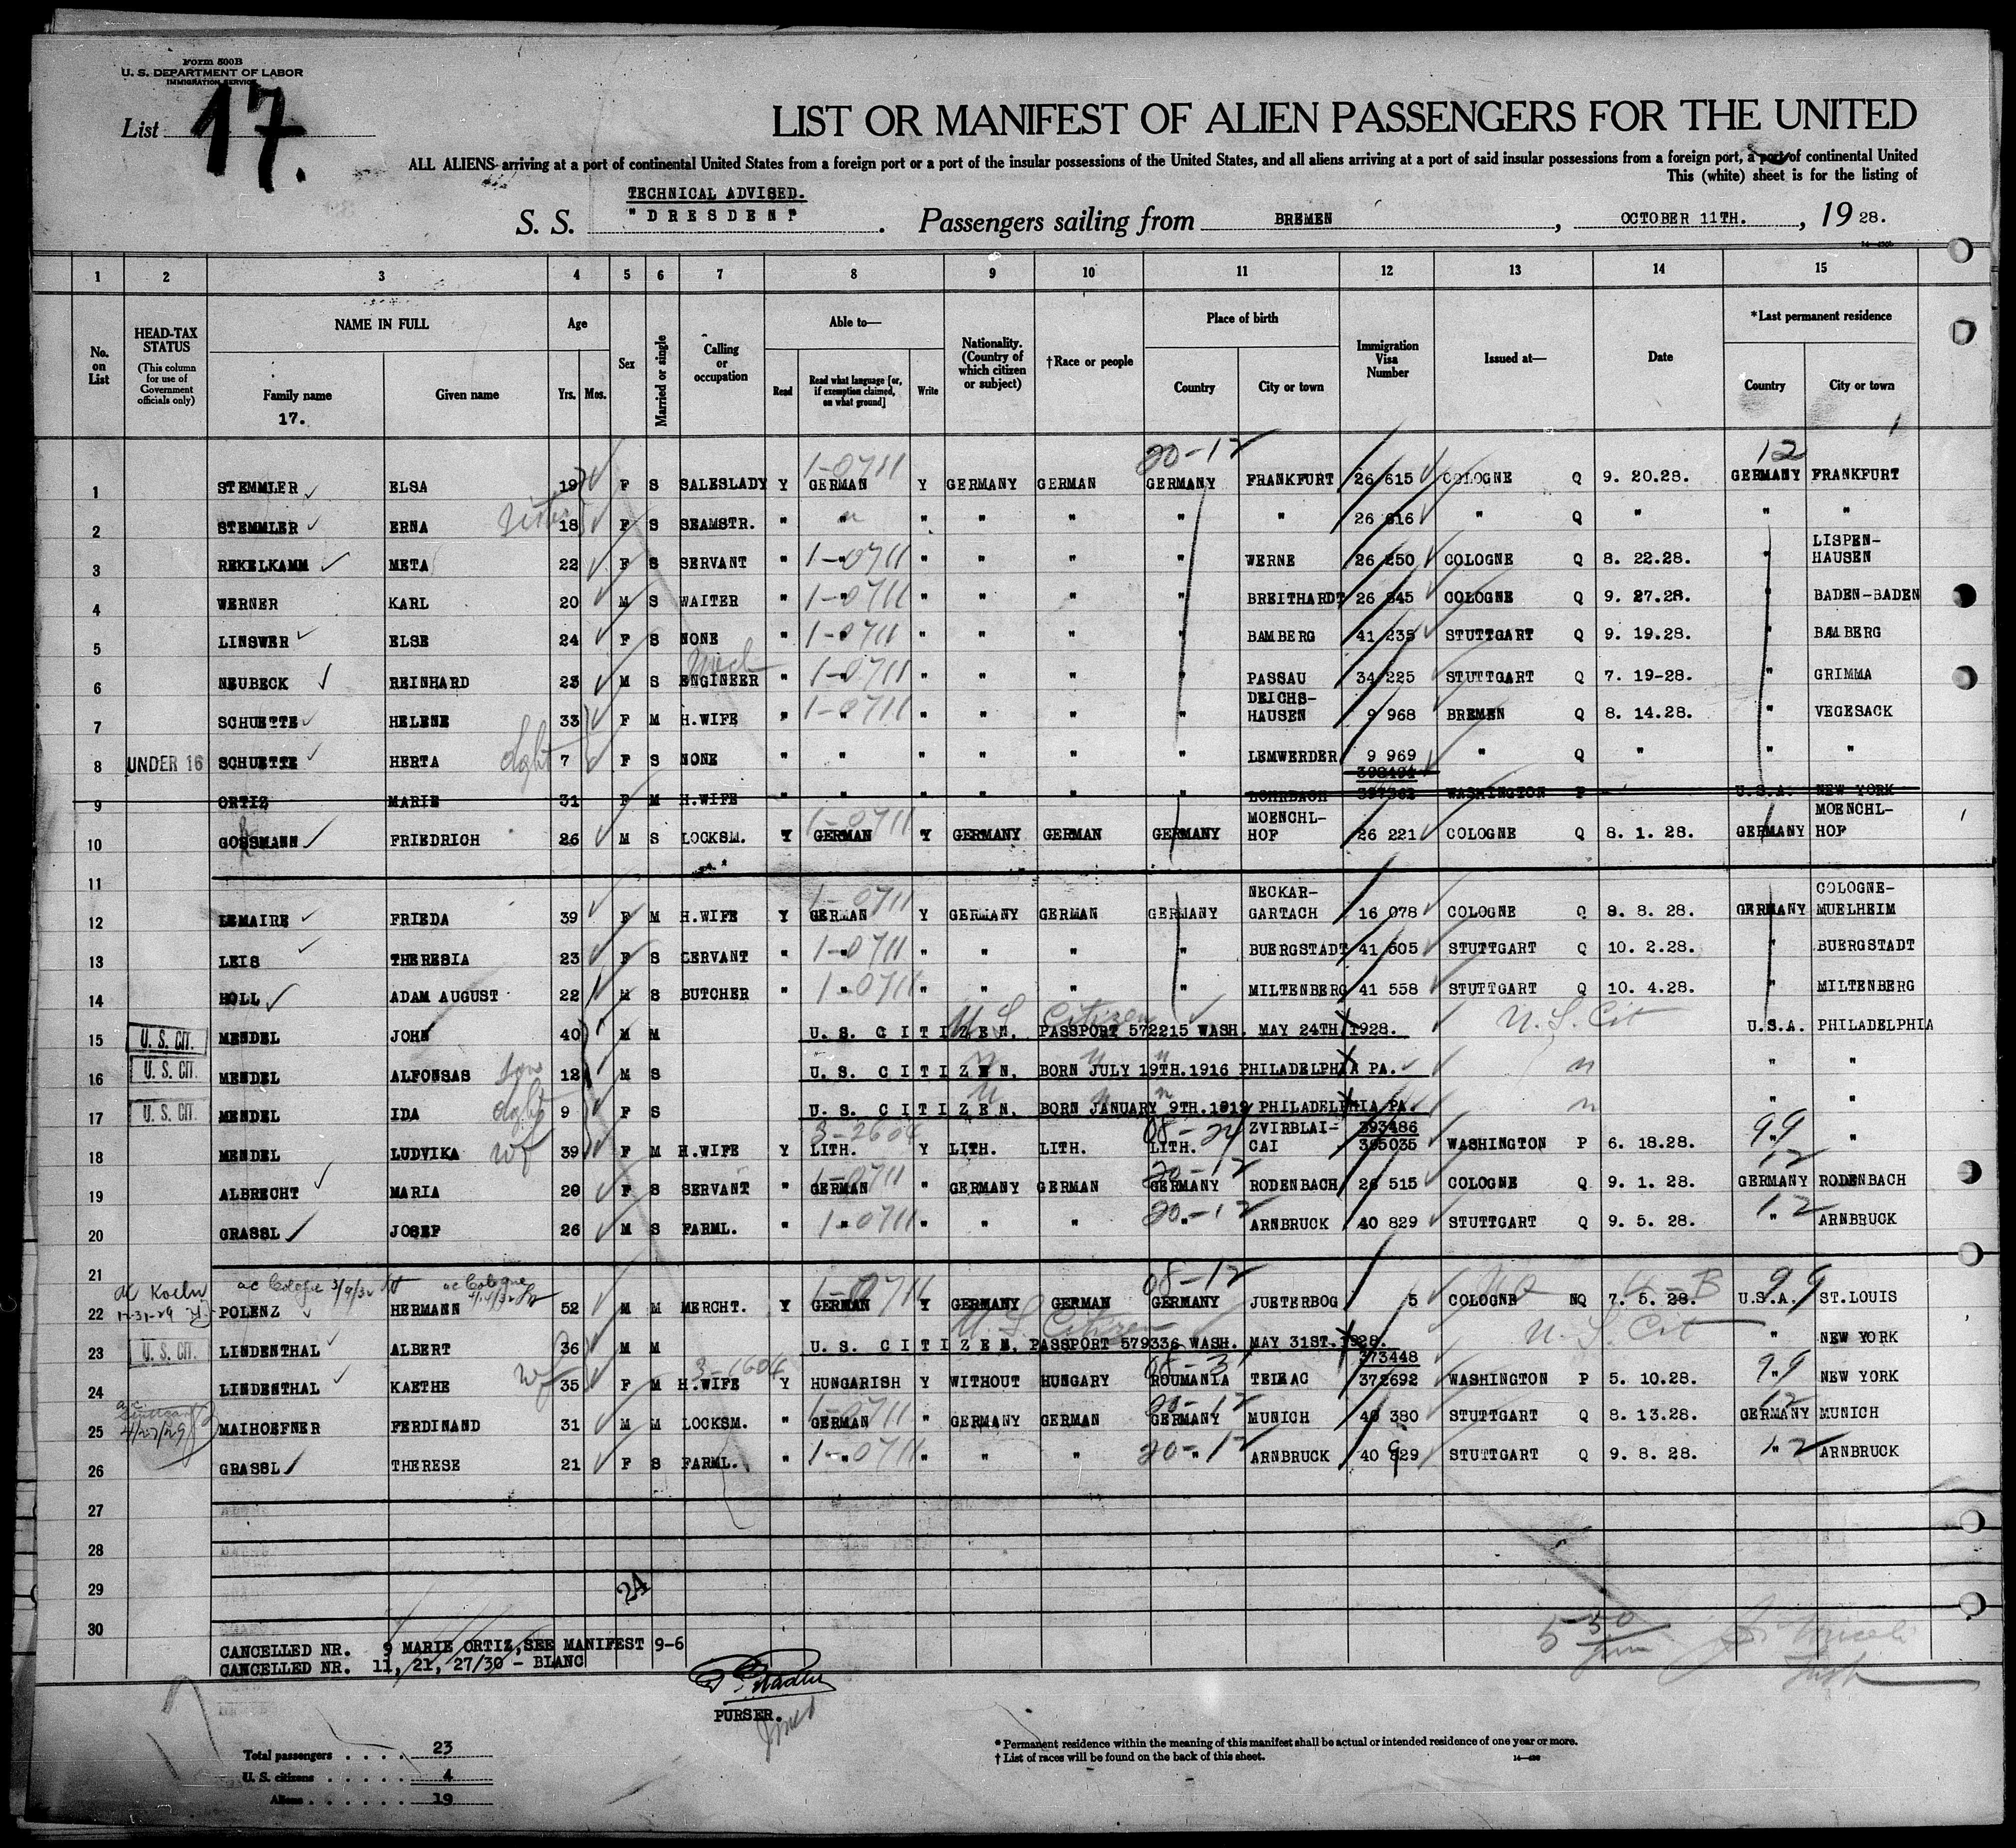 Form 500B
U. S. DEPARTMENT OF LABOR
IMMIGRATION SERVICE
List 17.
LIST OR MANIFEST OF ALIEN PASSENGERS FOR THE UNITED
ALL ALIENS arriving at a port of continental United States from a foreign port or a port of the insular possessions of the United States, and all aliens arriving at a port of said insular possessions from a foreign port, a port of continental United
This (white) sheet is for the listing of
TECHNICAL ADVISED.
S. S. "DRESDEN". Passengers sailing from BREMEN, OCTOBER 11TH., 1928.
1 2 3 4 5 6 7 8 9 10 11 12 13 14 15
No. on List
HEAD-TAX STATUS (This column for use of Government officials only)
NAME IN FULL Family name Given name
17.
Age Yrs. Mos.
Sex
Married or single
Calling or occupation
Able to— Read Read what language [or, if exemption claimed, on what ground] Write
Nationality. (Country of which citizen or subject)
†Race or people
Place of birth Country City or town
Immigration Visa Number
Issued at—
Date
*Last permanent residence Country City or town
20-12 12
1 STEMMLER ELSA 19 F S SALESLADY Y 1-0711 GERMAN Y GERMANY GERMAN GERMANY FRANKFURT 26 615 COLOGNE Q 9. 20.28. GERMANY FRANKFURT
2 STEMMLER ERNA sister 18 F S SEAMSTR. " " " " " " " 26 616 " Q " " "
3 REKELKAMM META 22 F S SERVANT " 1-0711 " " " " " WERNE 26 250 COLOGNE Q 8. 22.28. " LISPEN-HAUSEN
4 WERNER KARL 20 M S WAITER " 1-0711 " " " " " BREITHARDT 26 845 COLOGNE Q 9. 27.28. " BADEN-BADEN
5 LINSWER ELSE 24 F S NONE " 1-0711 " " " " " BAMBERG 41 235 STUTTGART Q 9. 19.28. " BAMBERG
6 NEUBECK REINHARD 23 M S ENGINEER " 1-0711 " " " " " PASSAU 34 225 STUTTGART Q 7. 19-28. " GRIMMA
7 SCHUETTE HELENE 33 F M H.WIFE " 1-0711 " " " " " DEICHS-HAUSEN 9 968 BREMEN Q 8. 14.28. " VEGESACK
8 UNDER 16 SCHUETTE HERTA dght 7 F S NONE " " " " " " LEMWERDER 9 969 " Q " " "
9 ORTIZ MARIE 31 F M H.WIFE " " " " " " LOHRBACH WASHINGTON P U.S.A. NEW YORK
10 GOSSMANN FRIEDRICH 26 M S LOCKSM. Y 1-0711 GERMAN Y GERMANY GERMAN GERMANY MOENCHL-HOF 26 221 COLOGNE Q 8. 1. 28. GERMANY MOENCHL-HOF
11
12 LEMAIRE FRIEDA 39 F M H.WIFE Y 1-0711 GERMAN Y GERMANY GERMAN GERMANY NECKAR-GARTACH 16 078 COLOGNE Q 8. 8. 28. GERMANY COLOGNE-MUELHEIM
13 LEIS THERESIA 23 F S SERVANT " 1-0711 " " " " " BUERGSTADT 41 505 STUTTGART Q 10. 2.28. " BUERGSTADT
14 HOLL ADAM AUGUST 22 M S BUTCHER " 1-0711 " " " " " MILTENBERG 41 558 STUTTGART Q 10. 4.28. " MILTENBERG
15 U. S. CIT. MENDEL JOHN 40 M M U.S. Citizen U. S. CITIZEN. PASSPORT 572215 WASH. MAY 24TH 1928. U.S. Cit U.S.A. PHILADELPHIA
16 U. S. CIT. MENDEL ALFONSAS son 12 M S U. S. CITIZEN. BORN JULY 19TH.1916 PHILADELPHIA PA. " " "
17 U. S. CIT. MENDEL IDA dght 9 F S U. S. CITIZEN. BORN JANUARY 9TH.1919 PHILADELPHIA PA. " " "
18 MENDEL LUDVIKA wf 39 F M H.WIFE Y 3-2606 LITH. Y LITH. LITH. 08-24 LITH. ZVIRBLAI-CAI 393486 395035 WASHINGTON P 6. 18.28. 99 " "
19 ALBRECHT MARIA 20 F S SERVANT " 1-0711 GERMAN " GERMANY GERMAN 20-12 GERMANY RODENBACH 26 515 COLOGNE Q 9. 1. 28. 12 GERMANY RODENBACH
20 GRASSL JOSEF 26 M S FARML. " 1-0711 " " " " 20-12 " ARNBRUCK 40 829 STUTTGART Q 9. 5. 28. 12 " ARNBRUCK
21
ac Cologne 3/9/32 ac Cologne
22 POLENZ HERMANN 52 M M MERCHT. Y 1-0711 GERMAN Y GERMANY GERMAN 08-12 GERMANY JUETERBOG 5 COLOGNE NQ 7. 5. 28. 4-B 99 U.S.A. ST.LOUIS
23 U. S. CIT. LINDENTHAL ALBERT 36 M M U.S. Citizen U. S. CITIZEN. PASSPORT 579336 WASH. MAY 31ST.1928. U.S. Cit " NEW YORK
24 LINDENTHAL KAETHE wf 35 F M H.WIFE Y 3-1604 HUNGARISH Y WITHOUT HUNGARY 08-31 ROUMANIA 373448 372692 WASHINGTON P 5. 10.28. 99 " NEW YORK
25 MAIHOEFNER FERDINAND 31 M M LOCKSM. " 1-0711 GERMAN " GERMANY GERMAN 20-12 GERMANY MUNICH 40 380 STUTTGART Q 8. 13.28. 12 GERMANY MUNICH
26 GRASSL THERESE 21 F S FARML. " 1-0711 " " " " 20-12 " ARNBRUCK 40 829 STUTTGART Q 9. 8. 28. 12 " ARNBRUCK
27
28
29
24
30
CANCELLED NR. 9 MARIE ORTIZ, SEE MANIFEST 9-6
CANCELLED NR. 11, 21, 27/30 - BLANC
PURSER.
Total passengers . . . . 23
U. S. citizens . . . . . 4
Aliens . . . . . . 19
* Permanent residence within the meaning of this manifest shall be actual or intended residence of one year or more.
† List of races will be found on the back of this sheet.